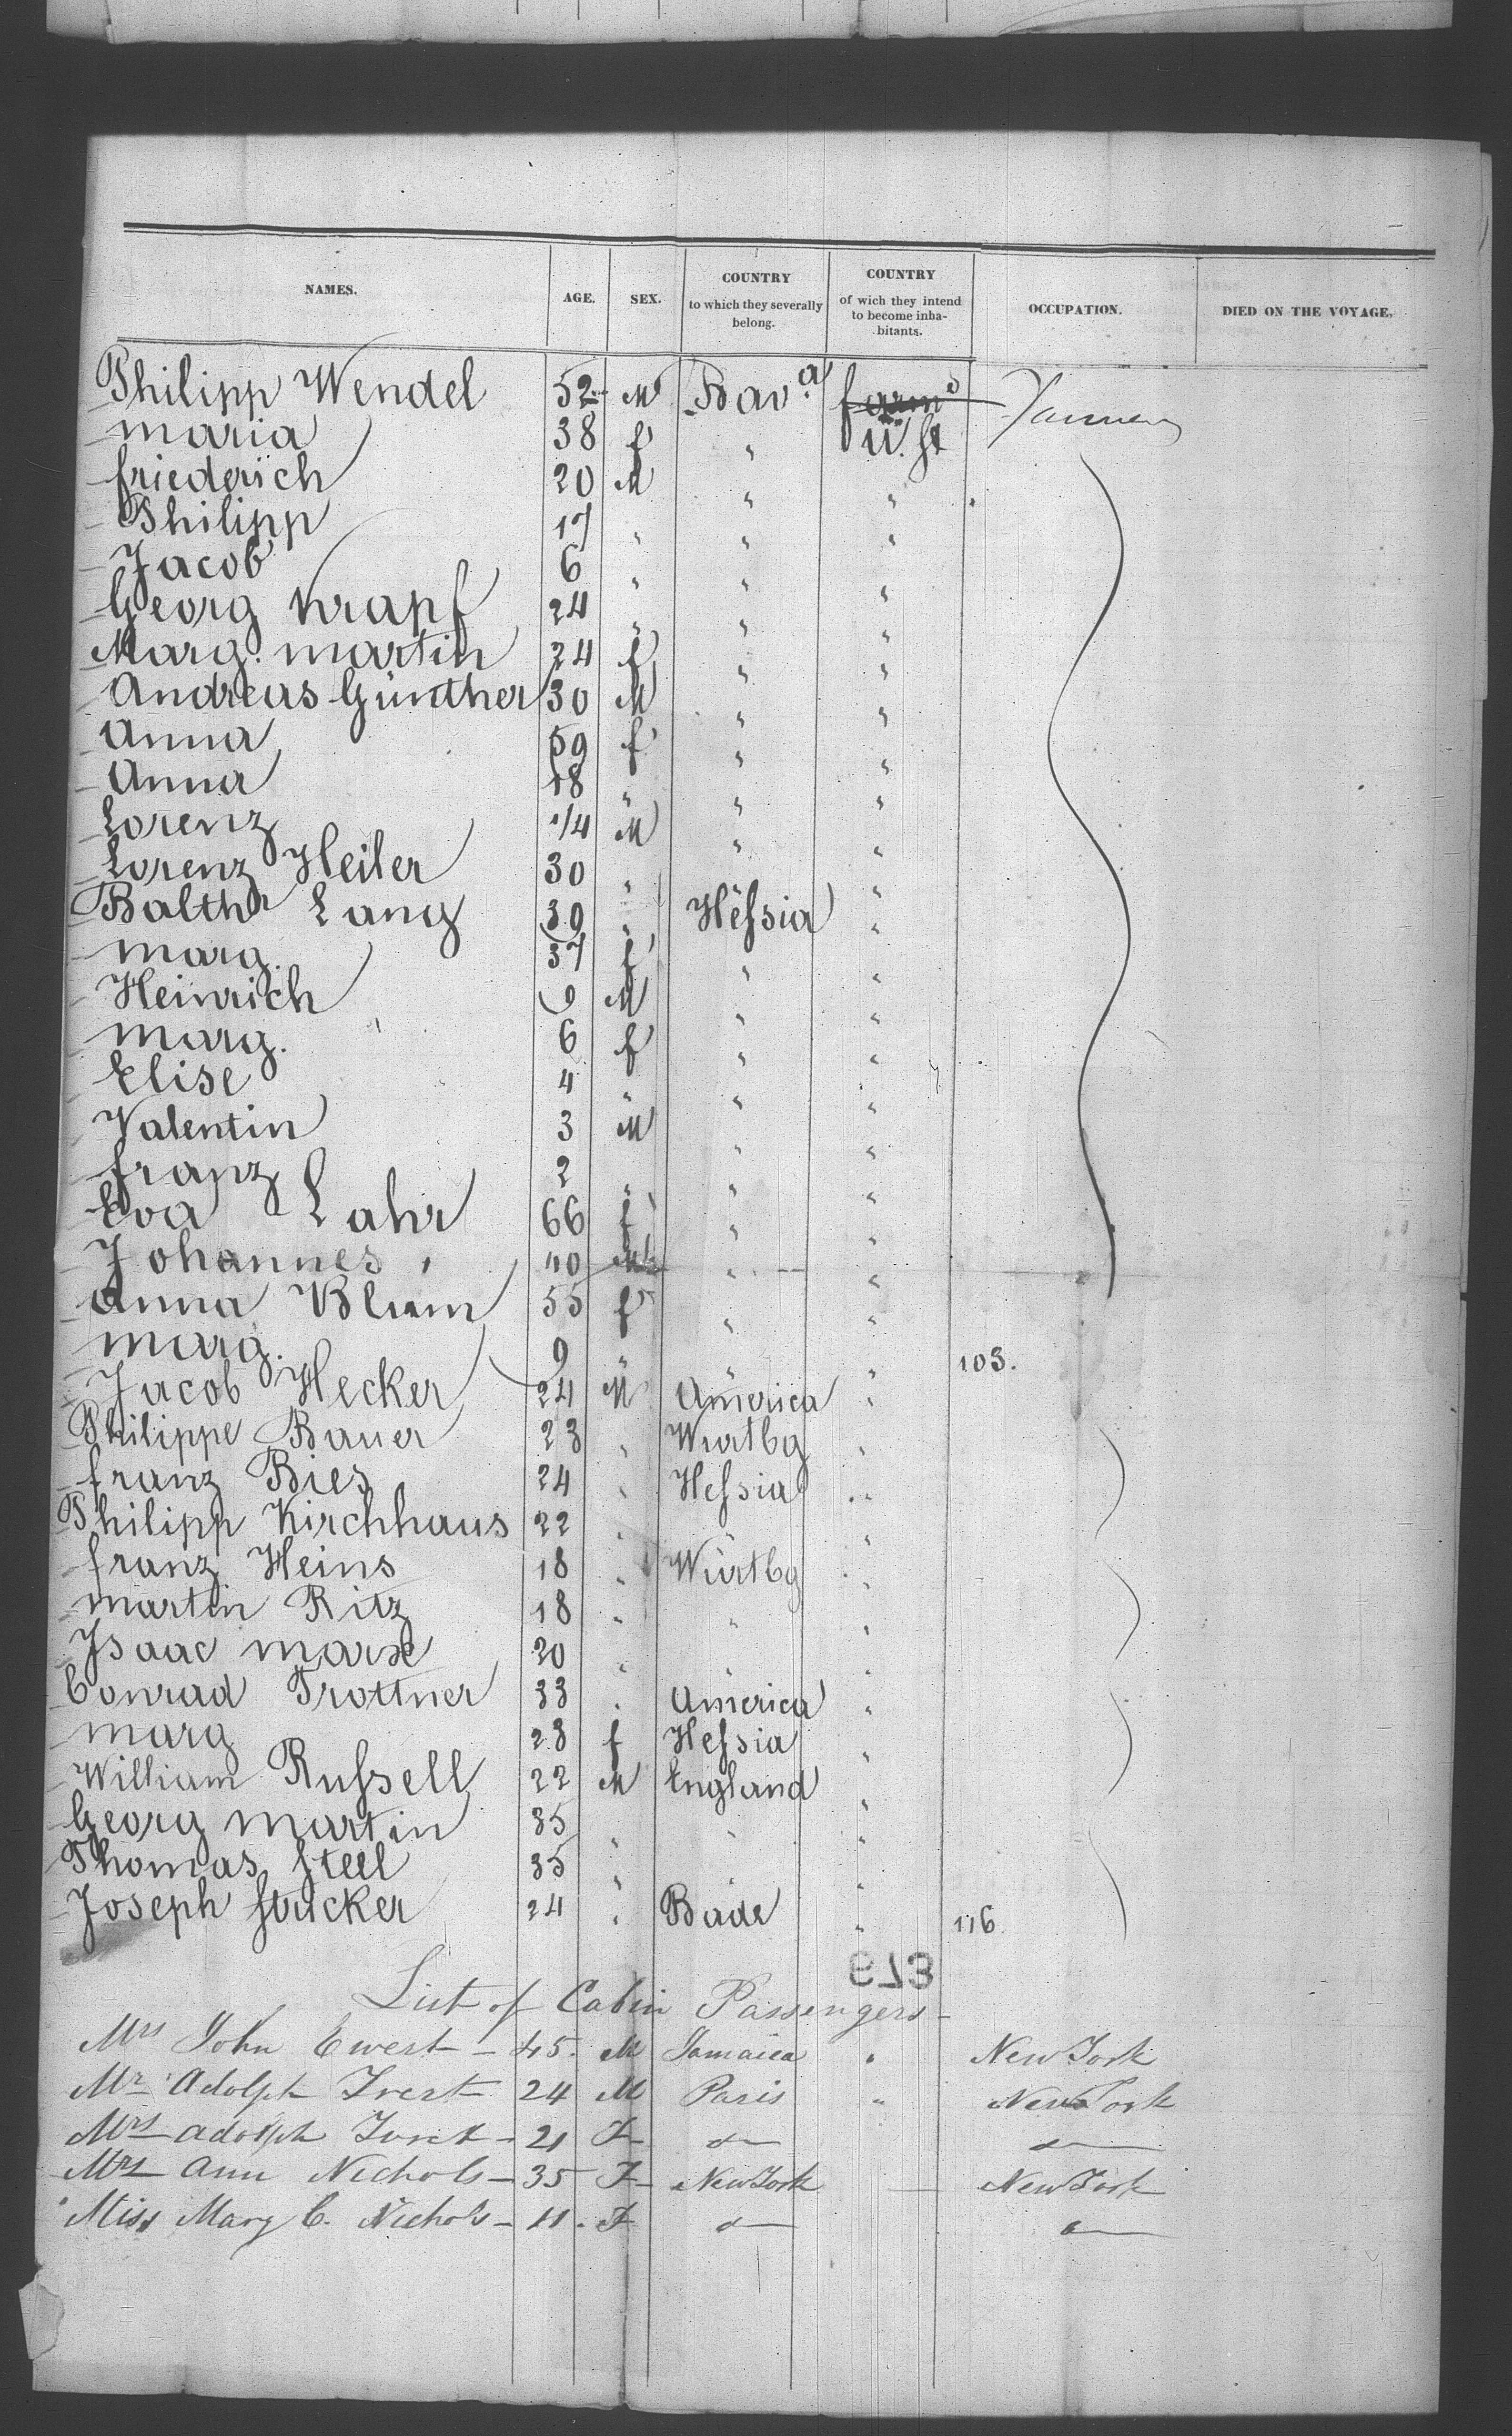 NAMES. AGE. SEX. COUNTRY to which they severally belong. COUNTRY of wich they intend to become inhabitants. OCCUPATION. DIED ON THE VOYAGE.
Philipp Wendel 52 M Bava farms
maria 38 f " U. St
friederich 20 M " "
Philipp 17 " " "
Jacob 6 " " "
Georg Krapf 24 " " "
Marg. martin 24 f " "
Andreas Günther 30 M " "
Anna 59 f " "
Anna 18 " " "
Lorenz 1/4 M " "
Lorenz Heiler 30 " " "
Balthr Lang 39 " Hessia "
marg. 37 f " "
Heinrich 9 M " "
marg. 6 f " "
Elise 4 " " "
Valentin 3 M " "
franz 2 " " "
Eva Lahr 66 f " "
Johannes " 40 M " "
Anna Blum 55 f " "
marg. 9 " " " 103.
Jacob Hecker 24 M America "
Philippe Bauer 23 " Wurtbg "
franz Bies 24 " Hessia "
Philipp Kirchhaus 22 " "
franz Heins 18 " Würtbg "
martin Ritz 18 " " "
Isaac marx 20 " " "
Conrad Trottner 33 " America "
marg 28 f Hessia "
William Russell 22 M England "
Georg martin 35 " " "
Thomas Steel 35 " " "
Joseph Stricker 24 " Bade " 116
873
List of Cabin Passengers -
Mrs John Ewest - 45. M Jamaica " New York
Mr Adolph 24 M Paris " New York
Mrs adolph - 21 F - do do
Mrs Ann Nichols - 35 F - New York New York
Miss Mary C. Nichols - 11 - F do do